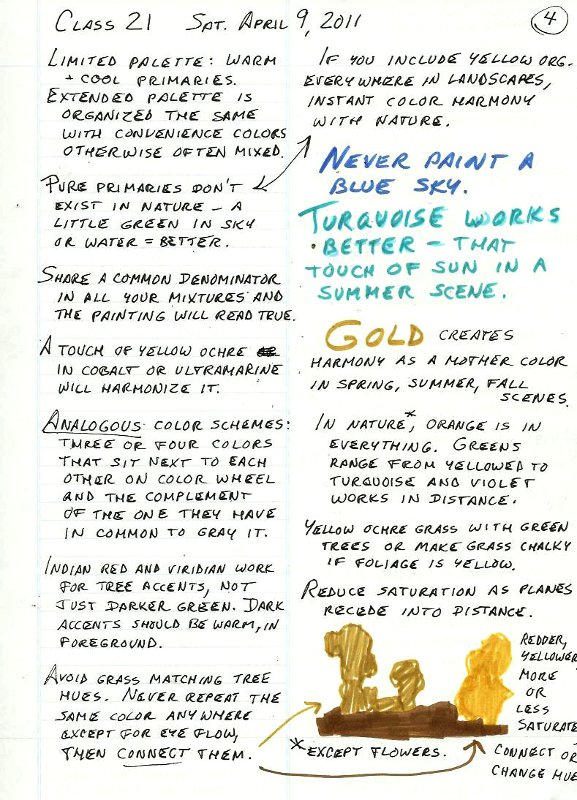 CLASS 21 SAT. APRIL 9, 2011
4
LIMITED PALETTE: WARM
+ COOL PRIMARIES.
EXTENDED PALETTE IS
ORGANIZED THE SAME
WITH CONVENIENCE COLORS
OTHERWISE OFTEN MIXED.
PURE PRIMARIES DON'T
EXIST IN NATURE – A
LITTLE GREEN IN SKY
OR WATER = BETTER.
SHARE A COMMON DENOMINATOR
IN ALL YOUR MIXTURES AND
THE PAINTING WILL READ TRUE.
A TOUCH OF YELLOW OCHRE
IN COBALT OR ULTRAMARINE
WILL HARMONIZE IT.
ANALOGOUS COLOR SCHEMES:
THREE OR FOUR COLORS
THAT SIT NEXT TO EACH
OTHER ON COLOR WHEEL
AND THE COMPLEMENT
OF THE ONE THEY HAVE
IN COMMON TO GRAY IT.
INDIAN RED AND VIRIDIAN WORK
FOR TREE ACCENTS, NOT
JUST DARKER GREEN. DARK
ACCENTS SHOULD BE WARM, IN
FOREGROUND.
AVOID GRASS MATCHING TREE
HUES. NEVER REPEAT THE
SAME COLOR ANYWHERE
EXCEPT FOR EYE FLOW,
THEN CONNECT THEM.
IF YOU INCLUDE YELLOW ORG.
EVERYWHERE IN LANDSCAPES,
INSTANT COLOR HARMONY
WITH NATURE.
NEVER PAINT A
BLUE SKY.
TURQUOISE WORKS
BETTER – THAT
TOUCH OF SUN IN A
SUMMER SCENE.
GOLD CREATES
HARMONY AS A MOTHER COLOR
IN SPRING, SUMMER, FALL
SCENES.
IN NATURE*, ORANGE IS IN
EVERYTHING. GREENS
RANGE FROM YELLOWED TO
TURQUOISE AND VIOLET
WORKS IN DISTANCE.
YELLOW OCHRE GRASS WITH GREEN
TREES OR MAKE GRASS CHALKY
IF FOLIAGE IS YELLOW.
REDUCE SATURATION AS PLANES
RECEDE INTO DISTANCE.
REDDER,
YELLOWER
MORE
OR
LESS
SATURATE
*EXCEPT FLOWERS.
CONNECT OR
CHANGE HUE